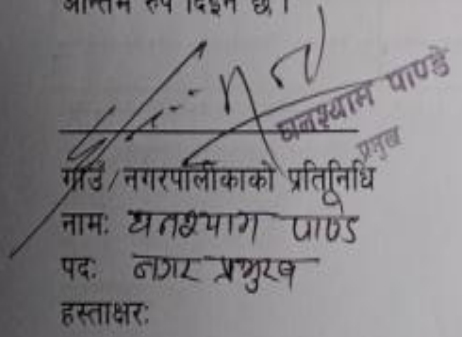 अन्तिम रुप दिइने छ।
घनश्याम पाण्डे
प्रमुख
गाउँ/नगरपालीकाको प्रतिनिधि
नामः घनश्याम पाण्डे
पदः नगर प्रमुख
हस्ताक्षरः